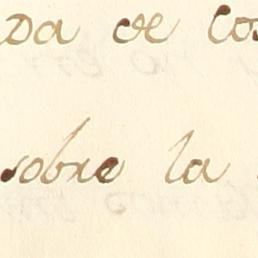 da de Cos
sobre la